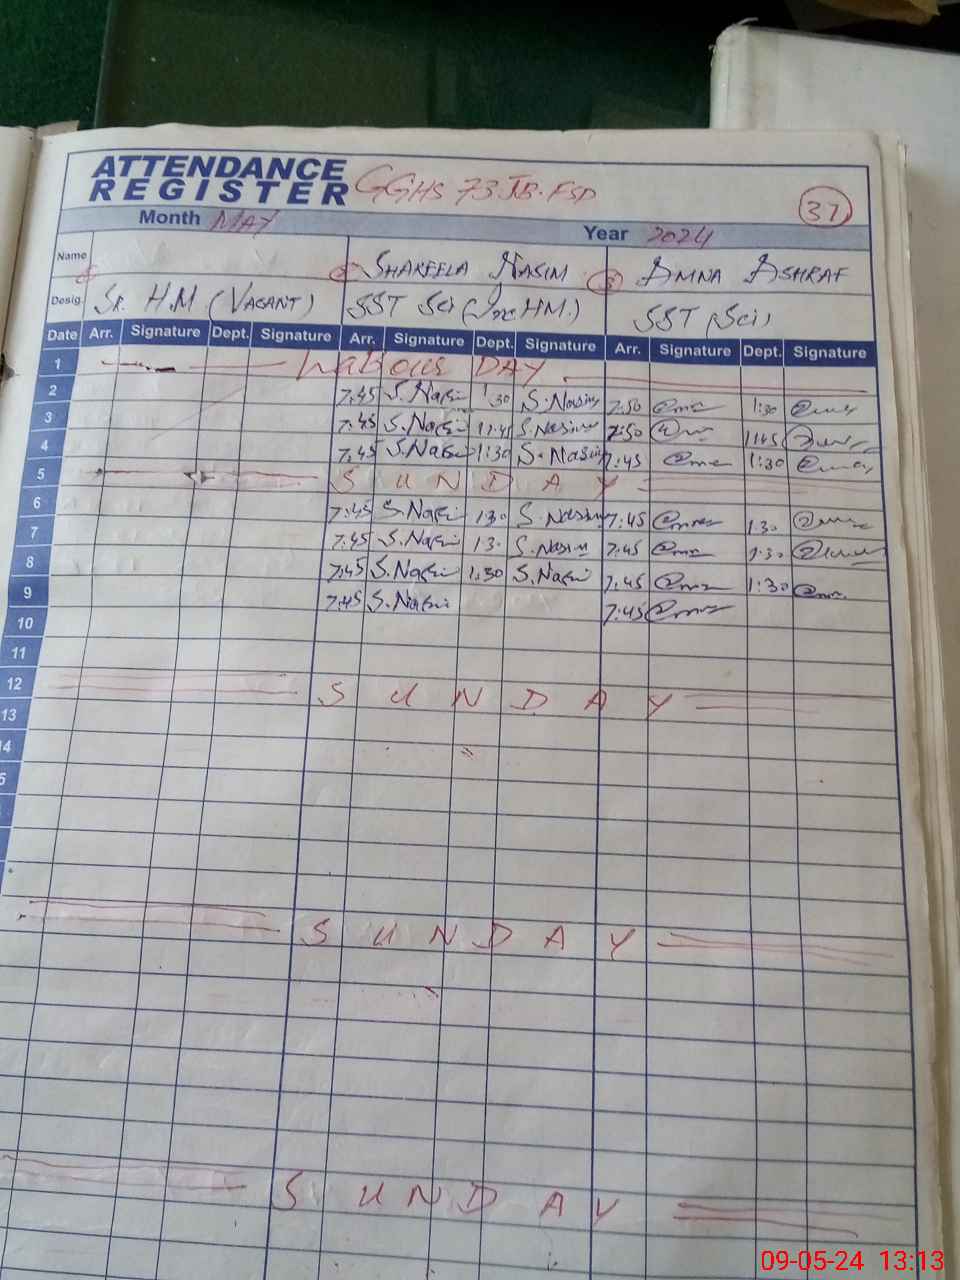 ATTENDANCE
REGISTER GGHS 73.JB.FSD
37
Month MAY Year 2024
Name SHAKEELA NASIM AMNA ASHRAF
Desig. Sr. H.M (VACANT) SST Sci (Inc HM.) SST (Sci)
Date Arr. Signature Dept. Signature Arr. Signature Dept. Signature Arr. Signature Dept. Signature
1 Labour DAY
2 7:45 S.Nasim 1:30 S.Nasim 7:50 1:30
3 7:45 S.Nasim 11:45 S.Nasim 7:50 1145
4 7:45 S.Nasim 1:30 S.Nasim 7:45 1:30
5 SUNDAY
6 7:45 S.Nasim 130 S.Nasim 7:45 1:30
7 7:45 S.Nasim 1:30 S.Nasim 7:45 1:30
8 7:45 S.Nasim 1:30 S.Nasim 7:45 1:30
9 7:45 S.Nasim 7:45
10
11
12 SUNDAY
13
14
SUNDAY
SUNDAY
09-05-24 13:13